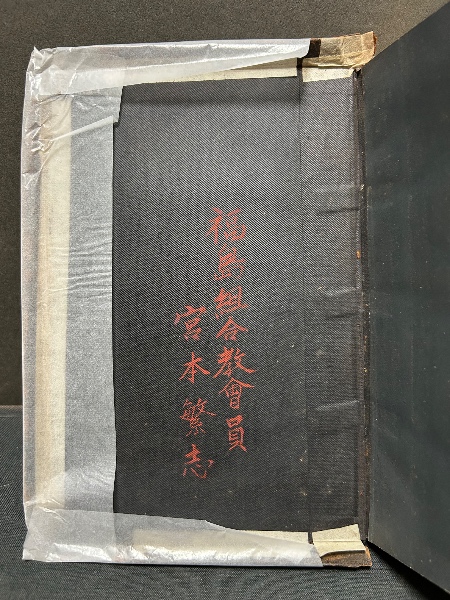 福島組合教會員
宮本繁志